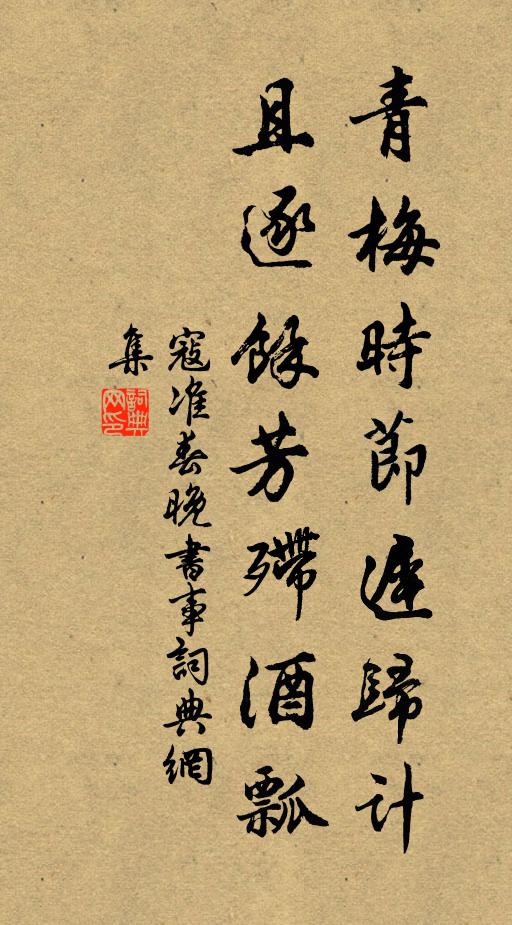 青梅時節遲歸計
且逐餘芳殢酒瓢
寇准春晚書事詞典網
集
詞典
网印